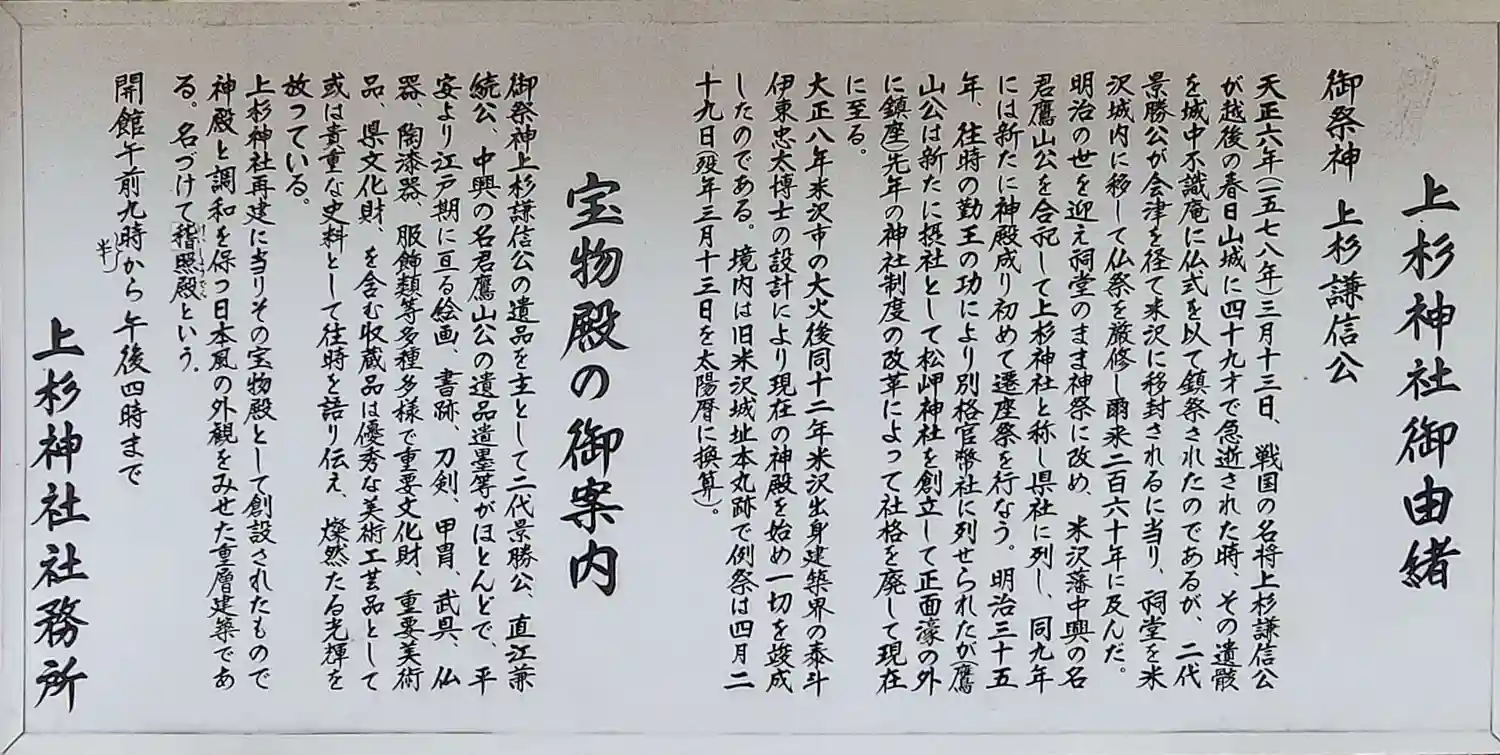 上杉神社御由緒
御祭神 上杉謙信公
天正六年(一五七八年)三月十三日、戦国の名将上杉謙信公
が越後の春日山城に四十九才で急逝された時、その遺骸
を城中不識庵に仏式を以て鎮祭されたのであるが、二代
景勝公が会津を径て米沢に移封されるに当り、祠堂を米
沢城内に移して仏祭を厳修し爾来二百六十年に及んだ。
明治の世を迎え祠堂のまま神祭に改め、米沢藩中興の名
君鷹山公を合祀して上杉神社と称し県社に列し、同九年
には新たに神殿成り初めて遷座祭を行なう。明治三十五
年、往時の勤王の功により別格官幣社に列せられたが(鷹
山公は新たに摂社として松岬神社を創立して正面濠の外
に鎮座)先年の神社制度の改革によって社格を廃して現在
に至る。
大正八年米沢市の大火後同十二年米沢出身建築界の泰斗
伊東忠太博士の設計により現在の神殿を始め一切を竣成
したのである。境内は旧米沢城址本丸跡で例祭は四月二
十九日(歿年三月十三日を太陽暦に換算)。
宝物殿の御案内
御祭神上杉謙信公の遺品を主として二代景勝公、直江兼
続公、中興の名君鷹山公の遺品遺墨等がほとんどで、平
安より江戸期に亘る絵画、書跡、刀剣、甲冑、武具、仏
器、陶漆器、服飾類等多種多様で重要文化財、重要美術
品、県文化財、を含む収蔵品は優秀な美術工芸品として
或は貴重な史料として往時を語り伝え、燦然たる光輝を
放っている。
上杉神社再建に当りその宝物殿として創設されたもので
神殿と調和を保つ日本風の外観をみせた重層建築であ
る。名づけて稽照殿という。
開館午前九時半から午後四時まで
上杉神社社務所